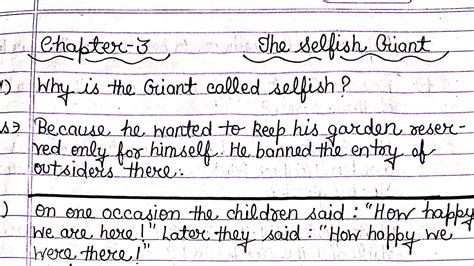 Chapter-3 The Selfish Giant
) Why is the Giant called selfish?
s→ Because he wanted to keep his garden reser-
ved only for himself. He banned the entry of
outsiders there.
) on one occasion the children said : "How happy
we are here!" Later they said : "How happy we
were there!"